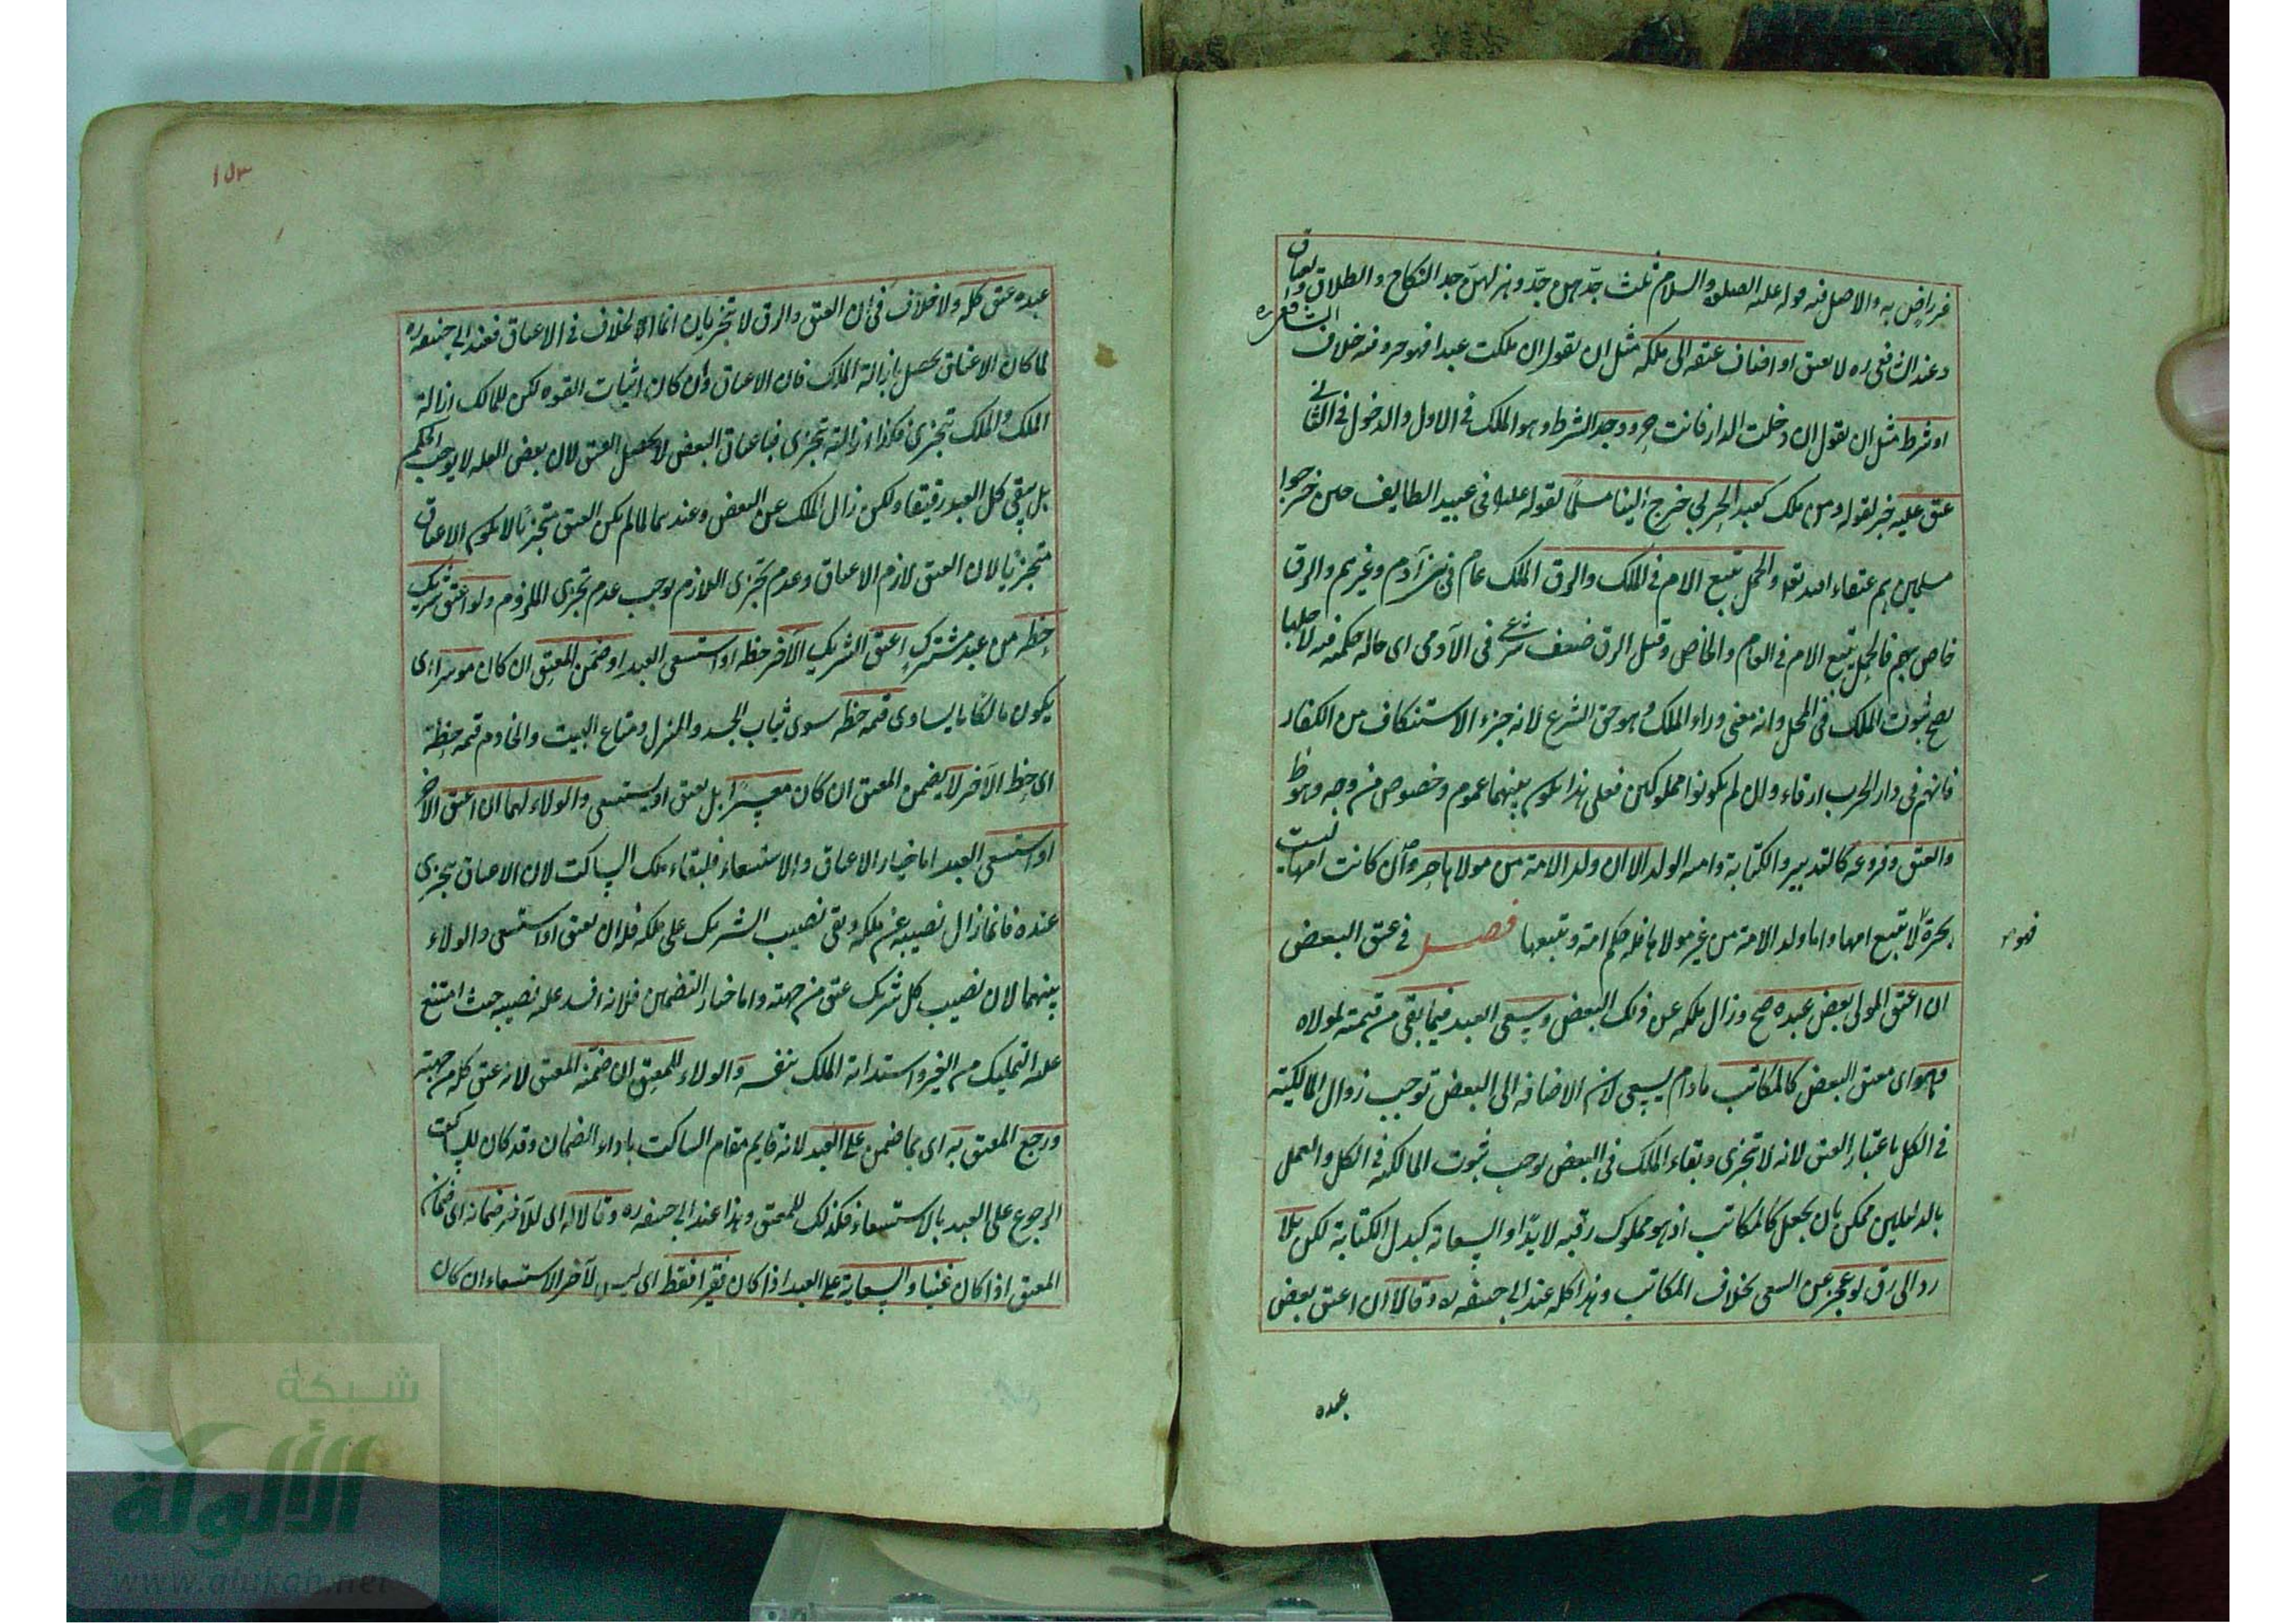 غير راض به والاصل فيه قوله عليه الصلوة والسلام ثلث جدّهن جدّ وهزلهن جد النكاح والطلاق والعتاق
وعند الشافعي ره لا يعتق او اضاف عتقه الى ملكه مثل ان يقول ان ملكت عبدا فهو حر وفيه خلاف الشافعي ره
او شرط مثل ان يقول ان دخلت الدار فانت حر ووجد الشرط وهو الملك في الاول والدخول في الثاني
عتق عليه خبر لقوله ومن ملك كعبد الحربي خرج الينا مسلما لقوله عليه في عبيد الطايف حين خرجوا
مسلمين هم عتقاء الله تعالى والحمل يتبع الام في الملك والرق الملك عام في بني آدم وغيرهم والرق
خاص بهم فالحمل يتبع الام في العام والخاص وقيل الرق ضعف شرعي في الآدمي اى حالة حكمية لاجلها
يصح ثبوت الملك في المحل وانه معنى وراء الملك وهو حق الشرع لانه جزاء الاستنكاف من الكفار
فانهم في دار الحرب ارقاء وان لم يكونوا مملوكين فعلى هذا يكون بينهما عموم وخصوص من وجه وهو ظ
والعتق وفروعه كالتدبير والكتابة وامية الولد الا ان ولد الامة من مولاها حر وان كانت امها ليست
بحرة لا تتبع امها واما ولد الامة من غير مولاها فله حكم امه وتبعها فصل في عتق البعض
فهو حر
ان اعتق المولى بعض عبده صح وزال ملكه عن ذلك البعض ويسعى العبد فيما بقي من قيمته لمولاه
وهو اى معتق البعض كالمكاتب مادام يسعى لان الاضافة الى البعض توجب زوال المالكية
في الكل باعتبار العتق لانه لا تجزى وبقاء الملك في البعض يوجب ثبوت المالكية في الكل والعمل
بالدليلين ممكن بان يجعل كالمكاتب اذ هو مملوك رقبة لا يدا والسعاية كبدل الكتابة لكن بلا
رد الى رق لو عجز عن السعي بخلاف المكاتب وهذا كله عند ابي حنيفه ره وقالا ان اعتق بعض
عبده
١٥٣
عبده عتق كله ولا خلاف في ان العتق والرق لا تجزيان انما الخلاف في الاعتاق فعند ابي حنيفه ره
لما كان الاعتاق يحصل بازالة الملك فان الاعتاق وان كان اثبات القوه لكن للمالك ازالة
الملك والملك تتجزى فكذا ازالته تجزى فباعتاق البعض لا يحصل العتق لان بعض العله لا يوجب الحكم
بل يبقى كل العبد رقيقا ولكن زال الملك عن البعض وعندهما لما لم يكن العتق متجزيا لا يكون الاعتاق
متجزيا لان العتق لازم الاعتاق وعدم تجزى اللازم يوجب عدم تجزى الملزوم ولو اعتق شريك
حظه من عبد مشترك اعتق الشريك الآخر حظه او استسعى العبد او ضمن المعتق ان كان موسرا اى
يكون مالكا ما يساوى قيمة حظه سوى ثياب الجسد والمنزل ومتاع البيت والخادم قيمة حظه
اى حظ الآخر لا يضمن المعتق ان كان معسرا بل يعتق او يستسعى والولاء لهما ان اعتق الآخر
او استسعى العبد اما خيار الاعتاق والاستسعاء فلبقاء ملك الساكت لان الاعتاق تجزى
عنده فانما زال نصيبه عن ملكه وبقى نصيب الشريك على ملكه فله ان يعتق او استسعى والولاء
بينهما لان نصيب كل شريك عتق من جهته واما خيار التضمين فلانه افسد عليه نصيبه حيث امتنع
عليه التمليك من الغير واستدامة الملك بنفسه والولاء للمعتق ان ضمنه المعتق لانه عتق كله من جهته
ورجع المعتق به اى بما ضمن على العبد لانه قايم مقام الساكت باداء الضمان وقد كان للساكت
الرجوع على العبد بالاستسعاء فكذلك للمعتق وهذا عند ابي حنيفه ره وقالا له اى للآخر ضمانه اى ضمان
المعتق اذا كان غنيا والسعاية على العبد اذا كان فقيرا فقط اى ليس لآخر الاستسعاء ان كان
شبكة
الألوكة
www.alukah.net